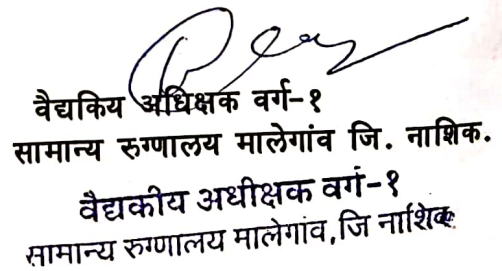 वैद्यकिय अधिक्षक वर्ग-१
सामान्य रुग्णालय मालेगांव जि. नाशिक.
वैद्यकीय अधीक्षक वर्ग-१
सामान्य रुग्णालय मालेगांव, जि नाशिक.